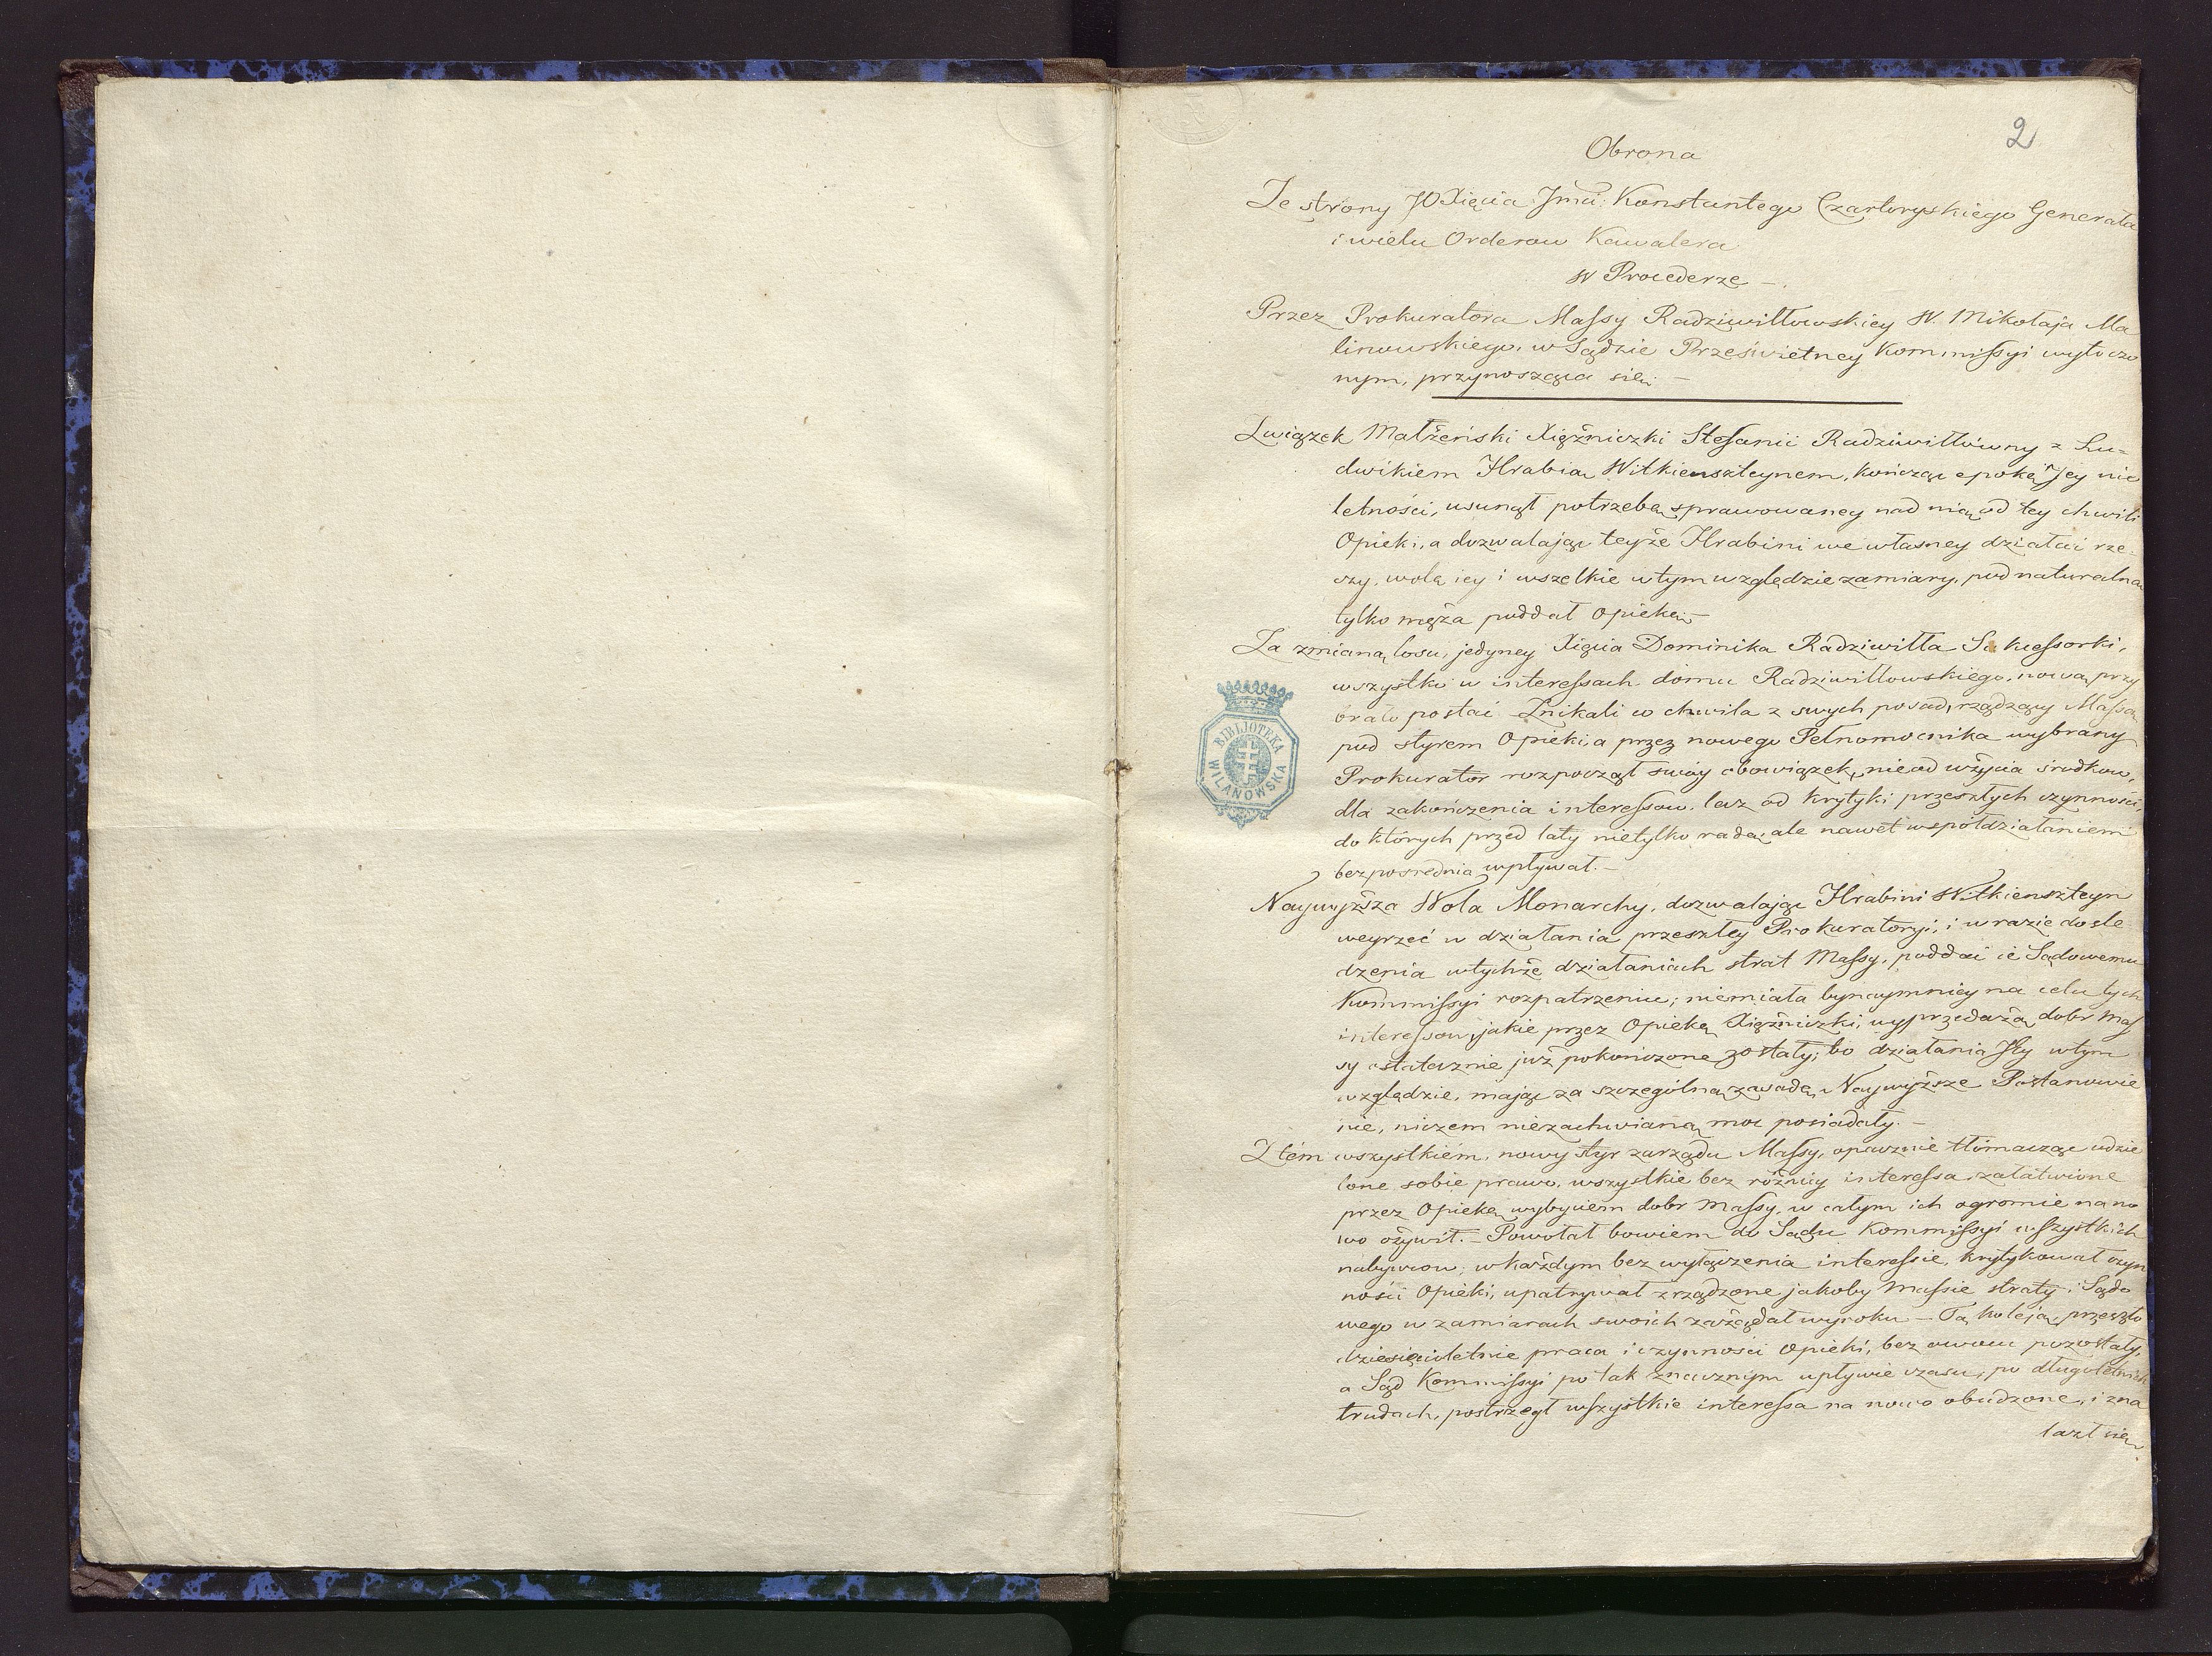 2
Obrona
Ze strony JO Xięcia Jmci: Konstantego Czartoryskiego Generała
i wielu Orderow Kawalera
w Procederze –.
Przez Prokuratora Massy Radziwiłłowskiey W. Mikołaja Ma
linowskiego, w Sądzie Prześwietney Kommissyi wytoczo
nym, przynosząca się. –
Związek Małżeński Xiężniczki Stefanii Radziwiłłówny z Lu=
dwikiem Hrabią Witkiensztejnem, kończąc epokę Jey nie
letności, usunął potrzebę sprawowaney nad nią od tey chwili
Opieki, a dozwalając teyże Hrabini we własney działać rze
czy, wolą iey i wszelkie w tym względzie zamiary, pod naturalną
tylko męża poddał Opiekę. –
Za zmianą losu, jedyney Xięcia Dominika Radziwiłła Sukcessorki,
wszystko w interessach domu Radziwiłłowskiego, nową przy
brało postać. Znikali w chwila z swych posad, rządzący Massą
pod styrem Opieki, a przez nowego Pełnomocnika wybrany
Prokurator rozpoczął swóy obowiązek, nie od użycia środkow,
dla zakończenia interessow, lecz od krytyki przeszłych czynności,
do których przed laty nietylko radą, ale nawet współdziałaniem
bezpośrednią wpływał. –
Naywyższa Wola Monarchy, dozwalając Hrabini Witkiensztejn
weyrzeć w działania przeszłey Prokuratoryi, i w razie dośle
dzenia w tychże działaniach strat Massy, poddać ie Sądowemu
Kommissyi rozpatrzeniu; nie miała bynaymniey na celu tych
interessow, jakie przez Opiekę Xiężniczki, wyprzedażą dobr Mas
sy ostatecznie już pokończone zostały; bo działania Jey w tym
względzie, mając za szczególną zasadę, Naywyższe Postanowie
nie, niczem niezachwianą moc posiadały. –
Z tém wszystkiém, nowy styr zarządu Massy, opacznie tłómacząc udzie
lone sobie prawo, wszystkie bez różnicy interessa, załatwione
przez Opiekę wybyciem dobr Massy, w całym ich ogromie na no
wo ożywił. – Powołał bowiem do Sądu Kommissyi wszystkich
nabywcow; w każdym bez wyłączenia interessie, krytykował czyn
ności Opieki, upatrywał zrządzone jakoby Massie straty, i Sądo
wego w zamiarach swoich zażądał wyroku – Tą koleją, przeszło
dziesięcioletnie praca i czynności Opieki, bez owocu pozostały,
a Sąd Kommissyi po tak znacznym upływie czasu, po długoletnich
trudach, postrzegł wszystkie interessa na nowo obudzone, i zna
lazł się
BIBLJOTEKA
WILANOWSKA